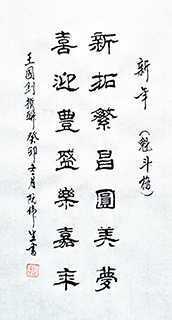 新年（魁斗格）
新拓繁昌圓美夢
喜迎豊盛樂嘉年
王國剑撰聯癸卯冬月阮偉生書